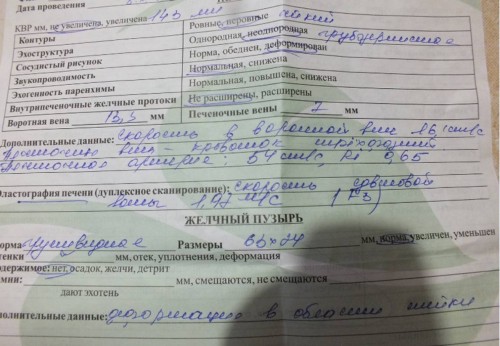 Дата проведения
КВР мм, не увеличена, увеличена 143 мм
Контуры Ровные, неровные
Эхоструктура Однородная, неоднородная
Сосудистый рисунок Норма, обеднен, деформирован
Звукопроводимость Нормальная, снижена
Эхогенность паренхимы Нормальная, повышена, снижена
Внутрипеченочные желчные протоки Не расширены, расширены
Воротная вена 13,5 мм Печеночные вены 7 мм
Дополнительные данные: скорость в воротной вене 16,1 см/с
вена - кровоток трехфазный
артерия: 54 см/с, Ri 0,65
Эластография печени (дуплексное сканирование): скорость сдвиговой
1,97 м/с (F3)
ЖЕЛЧНЫЙ ПУЗЫРЬ
грушевидная Размеры 66х24 мм, норма, увеличен, уменьшен
мм, отек, уплотнения, деформация
нет, осадок, желчи, детрит
мм, смещаются, не смещаются
дают эхотень
данные: деформация в области шейки